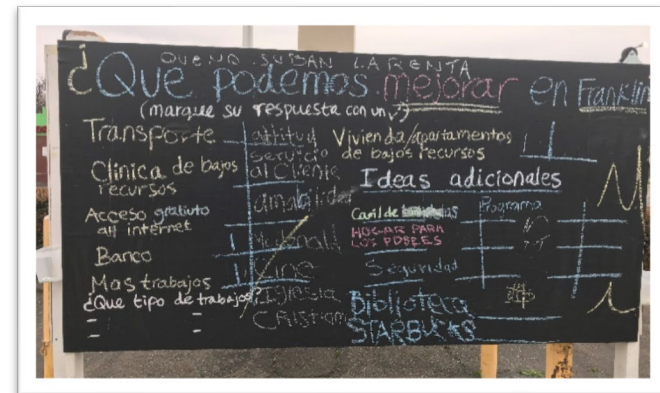 QUE NO SUBAN LA RENTA
¿Que podemos mejorar en Franklin
(marque su respuesta con un ✓)
Transporte
Clinica de bajos
recursos
Acceso gratiuto
all internet
Banco
Mas trabajos
¿Que tipo de trabajos?
-
-
-
-
attitud
servicio
al Cliente
amabilidad
McDonald
Cine
Iglesia
CRistiana
Vivienda/apartamentos
de bajos recursos
Ideas adicionales
Carril de
HOGAR PARA
LOS POBRES
Seguridad
Biblioteca
STARBUCKS
Programa